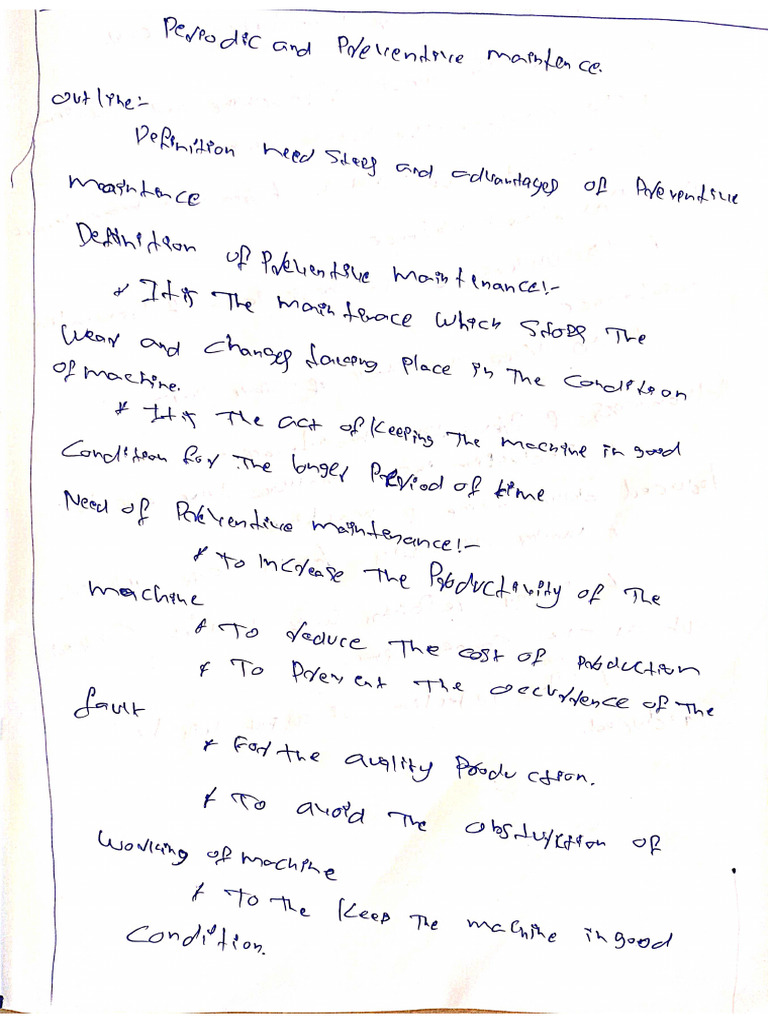 Periodic and Preventive maintence.
outline:-
Definition need steps and advantages of Preventive
maintence
Definition of Preventive maintenance:-
* It is The maintenace which stops The
wear and changes taking place in The condition
of machine.
* It is The act of Keeping The machine in good
Condition for The longer Period of time
Need of Preventive maintenance:-
* To increase The Productivity of The
machine
* To reduce The cost of production
* To Prevent The occurdence of The
fault
* For the quality Production.
* To avoid The obstruction of
working of machine
* To the Keep The machine in good
Condition.